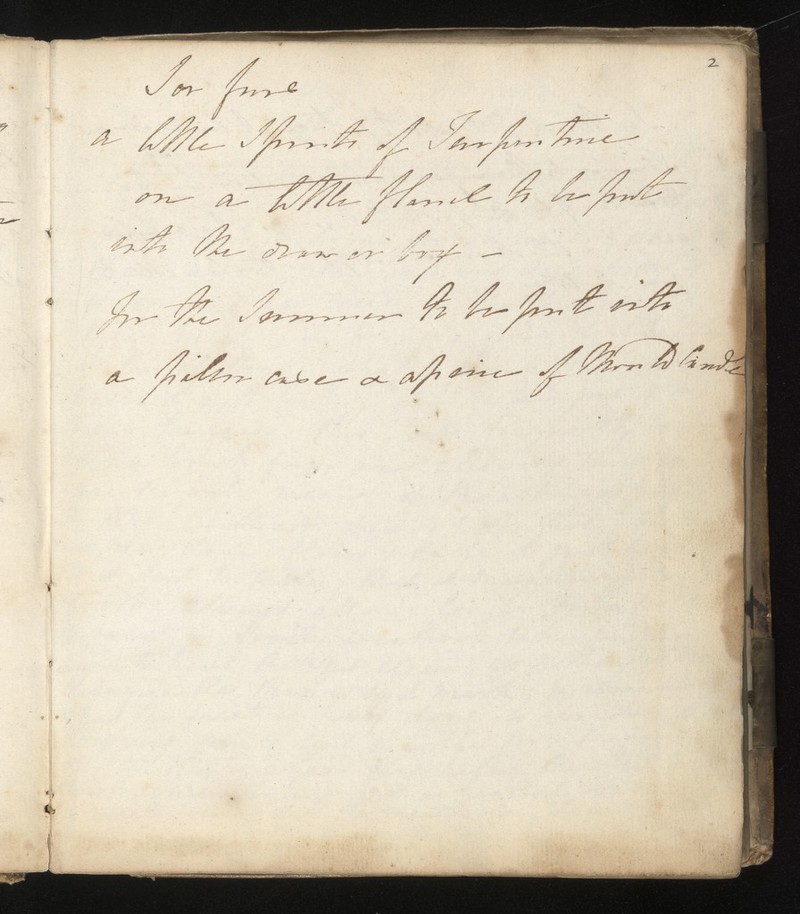 2
For furs
a little Spirits of Turpentine
on a little flanel to be put
into the draw or box -
for the Summer to be put into
a pillow case a of Mould Candle